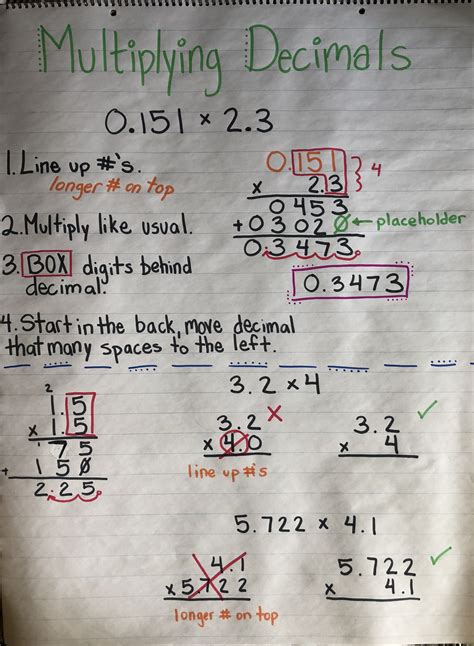 Multiplying Decimals
0.151 × 2.3
1. Line up #'s.
longer # on top
0.151
x 2.3
4
0453
+03020 ← placeholder
0.3473
2. Multiply like usual.
3. BOX digits behind
decimal.
0.3473
4. Start in the back, move decimal
that many spaces to the left.
2
1.5
x 1.5
1
75
+ 150
2.25
3.2 x 4
3.2 X
x 4.0
line up #'s
3.2 ✓
x 4
5.722 x 4.1
4.1
x 5.722
longer # on top
5.722 ✓
x 4.1